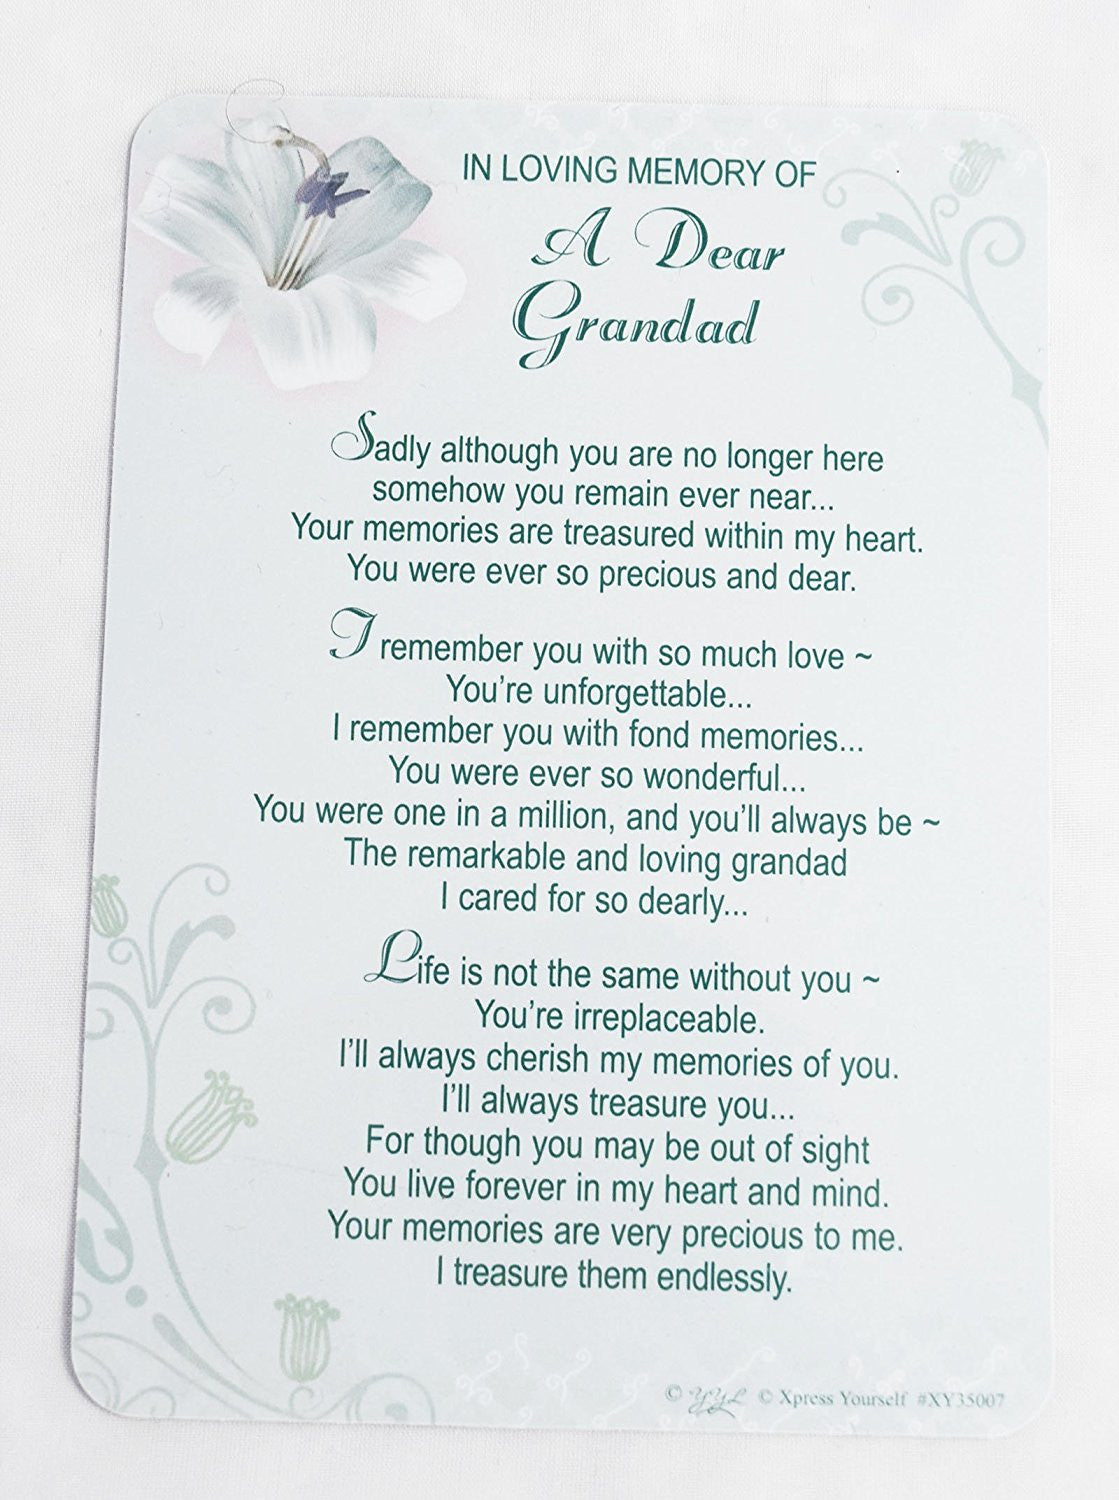 IN LOVING MEMORY OF
A Dear
Grandad
Sadly although you are no longer here
somehow you remain ever near...
Your memories are treasured within my heart.
You were ever so precious and dear.
I remember you with so much love ~
You're unforgettable...
I remember you with fond memories...
You were ever so wonderful...
You were one in a million, and you'll always be ~
The remarkable and loving grandad
I cared for so dearly...
Life is not the same without you ~
You're irreplaceable.
I'll always cherish my memories of you.
I'll always treasure you...
For though you may be out of sight
You live forever in my heart and mind.
Your memories are very precious to me.
I treasure them endlessly.
© YYL © Xpress Yourself #XY35007